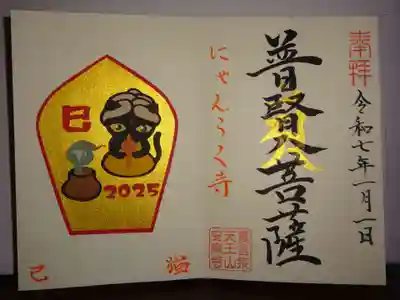 奉拝
令和七年一月一日
普賢菩薩
天王山
にゃんらく寺
巳
2025
巳
猫